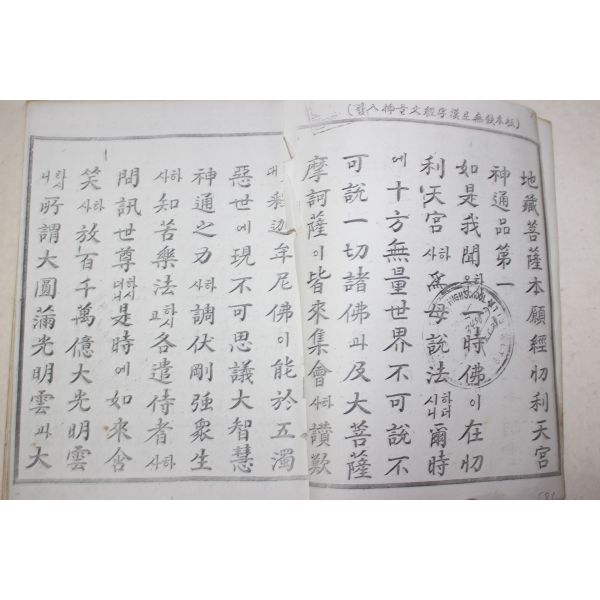 地藏菩薩本願經忉利天宮
神通品第一
如是我聞 一時佛이在忉
利天宮하사爲母說法하더시니爾時
에十方無量世界不可說不
可說一切諸佛과及大菩薩
摩訶薩이皆來集會하사讚歎
牟尼佛이能於五濁
惡世에現不可思議大智慧
神通之力하사調伏剛强衆生
하사知苦樂法하시고各遣侍者하사
問訊世尊하더시니是時에如來含
笑하사放百千萬億大光明雲
하시니所謂大圓滿光明雲과大